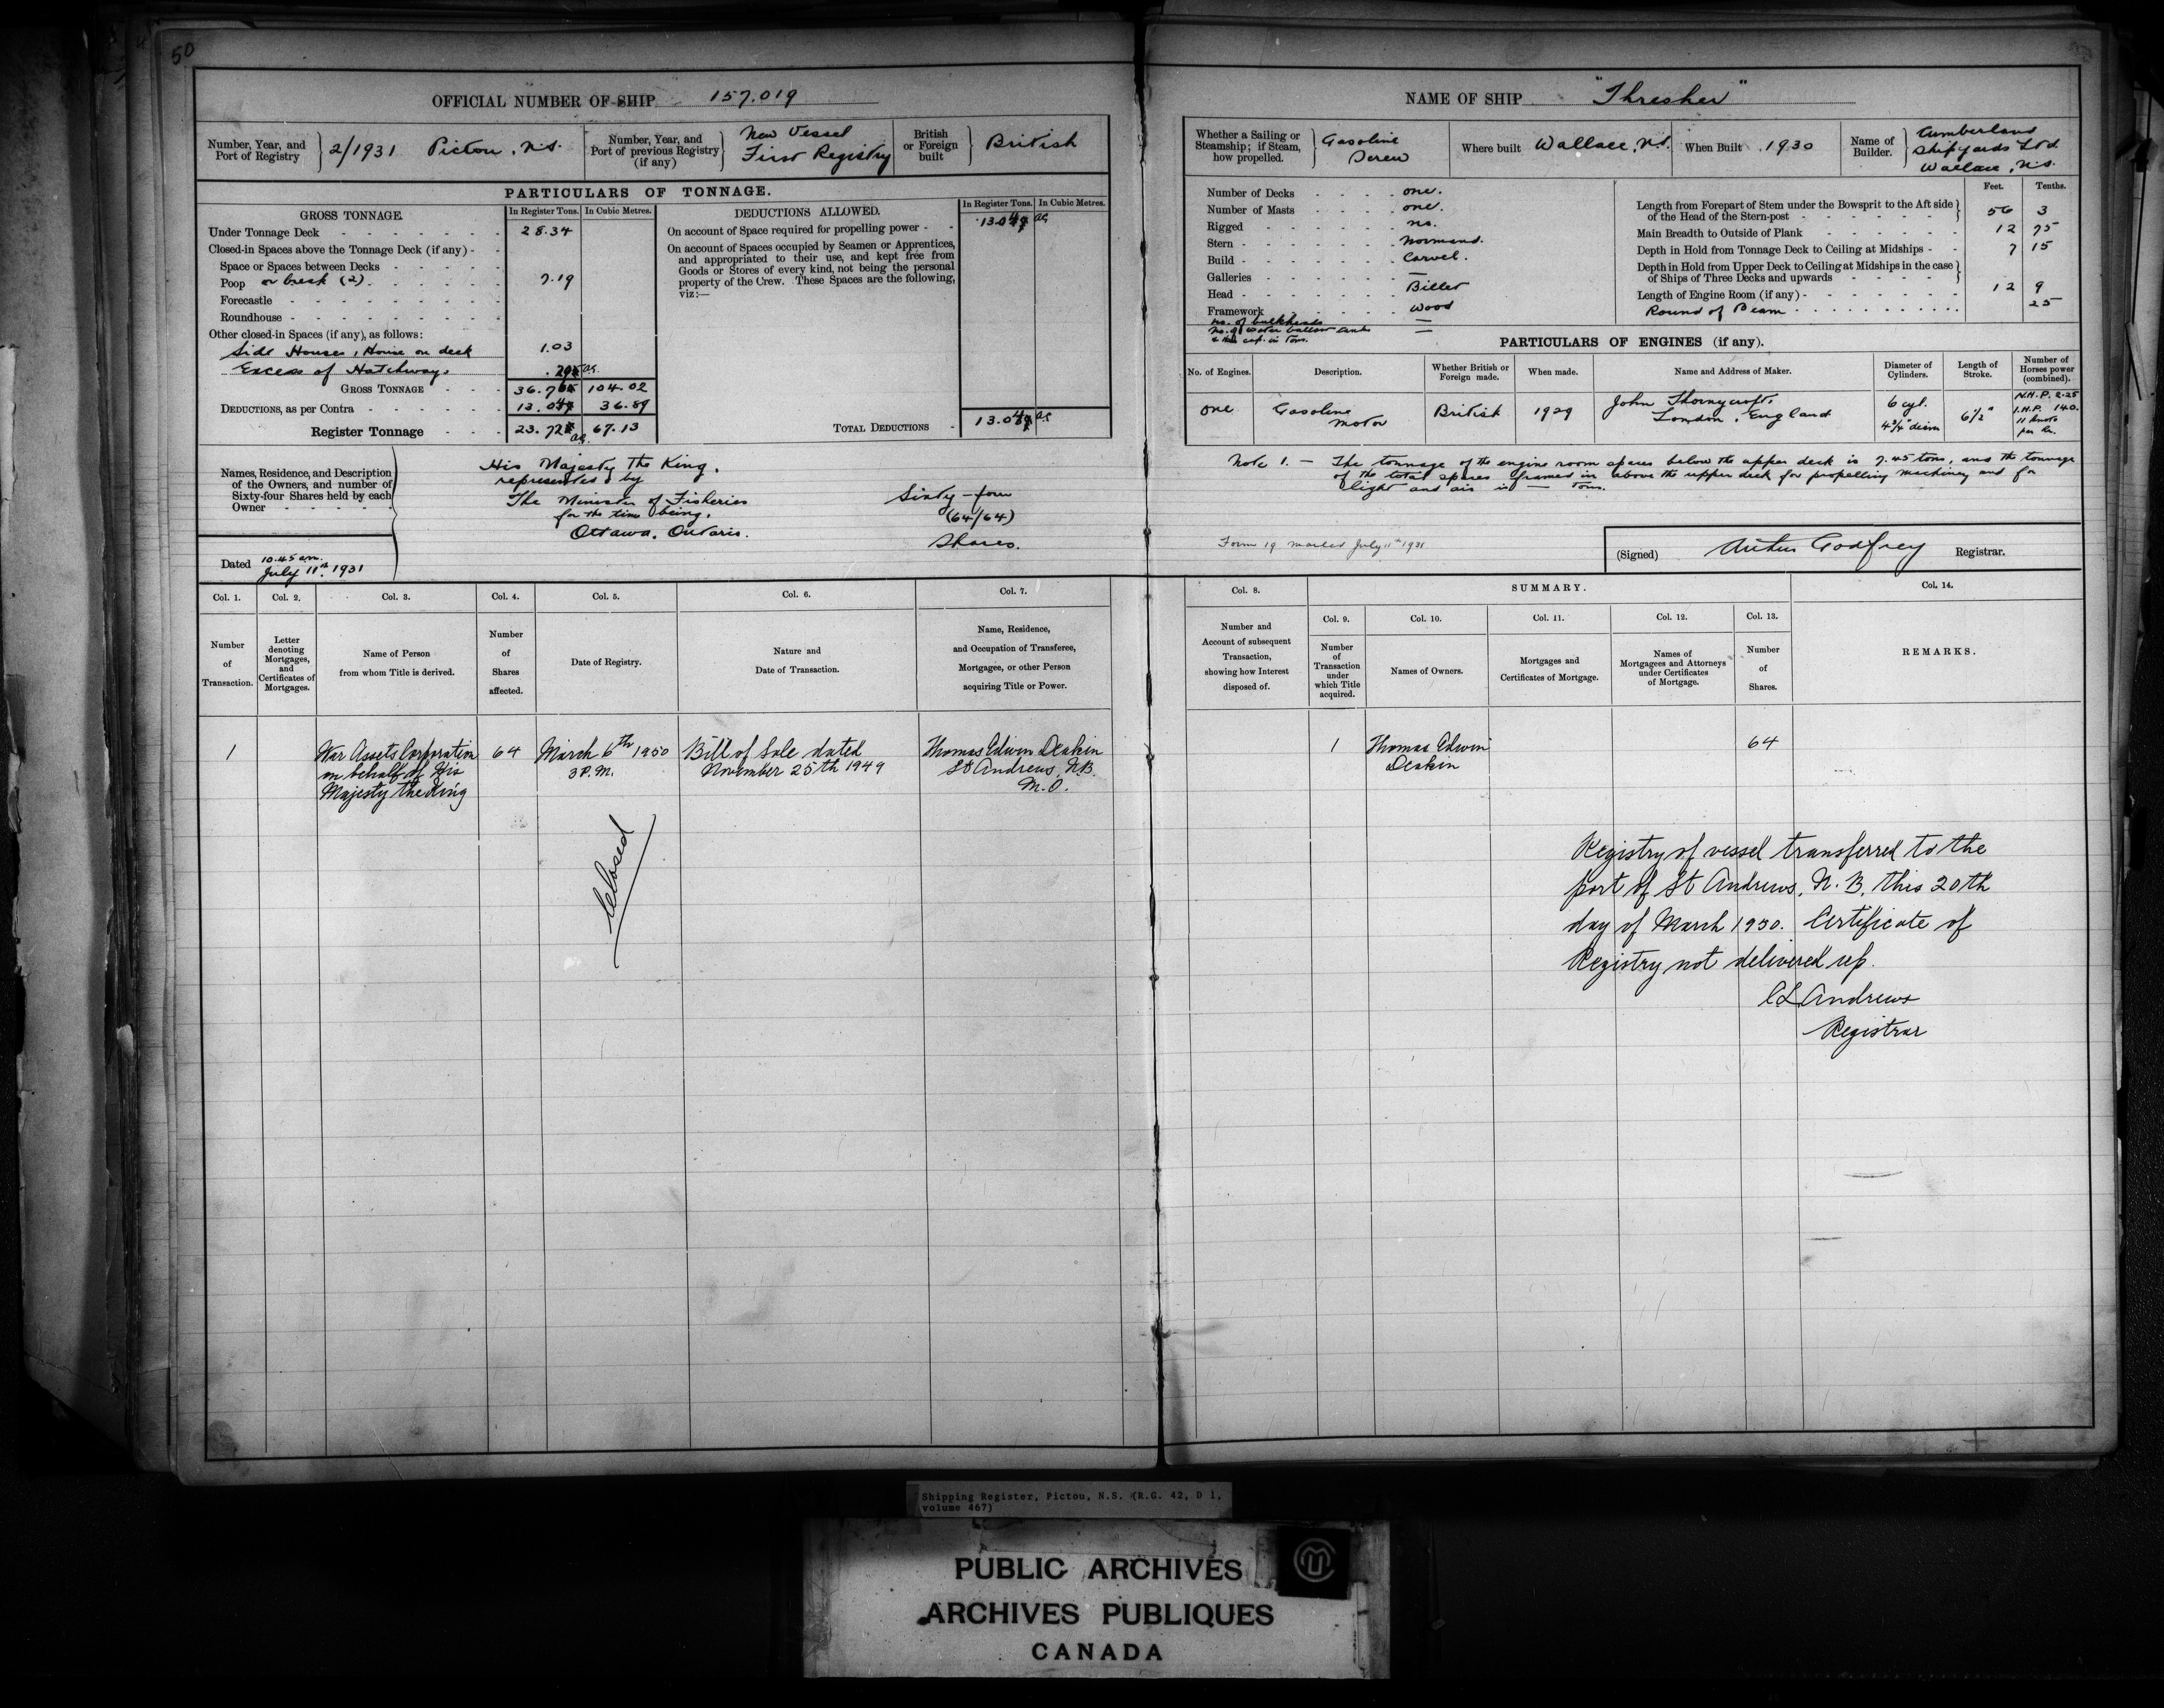 50
OFFICIAL NUMBER OF SHIP 157.019
Number, Year, and Port of Registry 2/1931 Pictou, N.S.
Number, Year, and Port of previous Registry (if any) New Vessel First Registry
British or Foreign built British
PARTICULARS OF TONNAGE.
GROSS TONNAGE.
In Register Tons. In Cubic Metres.
Under Tonnage Deck 28.34
Closed-in Spaces above the Tonnage Deck (if any)
Space or Spaces between Decks
Poop or break (2) 7.19
Forecastle
Roundhouse
Other closed-in Spaces (if any), as follows:
Side Houses, House on deck 1.03
Excess of Hatchways
GROSS TONNAGE 104.02
DEDUCTIONS, as per Contra 36.89
Register Tonnage 67.13
DEDUCTIONS ALLOWED.
In Register Tons. In Cubic Metres.
On account of Space required for propelling power
On account of Spaces occupied by Seamen or Apprentices,
and appropriated to their use, and kept free from
Goods or Stores of every kind, not being the personal
property of the Crew. These Spaces are the following,
viz:—
TOTAL DEDUCTIONS
Names, Residence, and Description
of the Owners, and number of
Sixty-four Shares held by each
Owner
His Majesty The King,
represented by
The Minister of Fisheries
for the time being,
Ottawa, Ontario.
Sixty-four
(64/64)
Shares.
Dated 10.45 am.
July 11th, 1931
NAME OF SHIP "Thresher"
Whether a Sailing or Steamship; if Steam, how propelled. Gasoline Screw
Where built Wallace, N.S.
When Built 1930
Name of Builder. Cumberland Shipyards Ltd. Wallace, N.S.
Number of Decks one.
Number of Masts one.
Rigged no.
Stern Normand.
Build Carvel.
Galleries —
Head Billet
Framework wood
No. of bulkheads —
No. of water ballast tanks —
& their cap. in tons.
Feet. Tenths.
Length from Forepart of Stem under the Bowsprit to the Aft side
of the Head of the Stern-post 56 3
Main Breadth to Outside of Plank 12 75
Depth in Hold from Tonnage Deck to Ceiling at Midships 7 15
Depth in Hold from Upper Deck to Ceiling at Midships in the case
of Ships of Three Decks and upwards
Length of Engine Room (if any) 12 9
Round of Beam 25
PARTICULARS OF ENGINES (if any).
No. of Engines. Description. Whether British or Foreign made. When made. Name and Address of Maker. Diameter of Cylinders. Length of Stroke. Number of Horses power (combined).
one Gasoline Motor British 1929 John Thornycroft, London, England 6 cyl. 4 3/4" diam 6 1/2" N.H.P. 2.25 I.H.P. 140. 11 knots per hr.
Note 1. — The tonnage of the engine room spaces below the upper deck is 7.45 tons, and the tonnage
of the total spaces framed in above the upper deck for propelling machinery and for
light and air is — Tons.
Form 19 mailed July 11th 1931
(Signed) Arthur Godfrey Registrar.
Col. 1. Col. 2. Col. 3. Col. 4. Col. 5. Col. 6. Col. 7.
Number of Transaction.
Letter denoting Mortgages, and Certificates of Mortgages.
Name of Person from whom Title is derived.
Number of Shares affected.
Date of Registry.
Nature and Date of Transaction.
Name, Residence, and Occupation of Transferee, Mortgagee, or other Person acquiring Title or Power.
1
War Assets Corporation
on behalf of His
Majesty the King
64
March 6th 1950
3 P.M.
Bill of Sale dated
November 25th 1949
Thomas Edwin Deakin
St Andrews, N.B.
M.O.
Closed
Col. 8. SUMMARY. Col. 14.
Col. 9. Col. 10. Col. 11. Col. 12. Col. 13.
Number and Account of subsequent Transaction, showing how Interest disposed of.
Number of Transaction under which Title acquired.
Names of Owners.
Mortgages and Certificates of Mortgage.
Names of Mortgagees and Attorneys under Certificates of Mortgage.
Number of Shares.
REMARKS.
1
Thomas Edwin
Deakin
64
Registry of vessel transferred to the
port of St Andrews, N.B. this 20th
day of March 1950. Certificate of
Registry not delivered up.
C L Andrews
Registrar
Shipping Register, Pictou, N.S. (R.G. 42, D 1,
volume 467)
PUBLIC ARCHIVES
ARCHIVES PUBLIQUES
CANADA